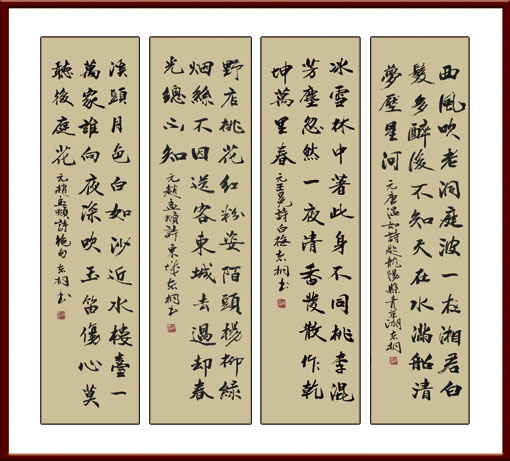 西風吹老洞庭波一夜湘君白
髮多醉後不知天在水滿船清
夢壓星河
元唐温如詩題龍陽縣青草湖桐
冰雪林中著此身不同桃李混
芳塵忽然一夜清香發散作乾
坤萬里春
元王冕詩白梅桐书
野店桃花紅粉姿陌頭楊柳綠
烟絲不因送客東城去過却春
光總不知
元趙孟頫詩東城桐书
溪頭月色白如沙近水樓臺一
萬家誰向夜深吹玉笛傷心莫
聽後庭花
元趙孟頫詩絶句桐书